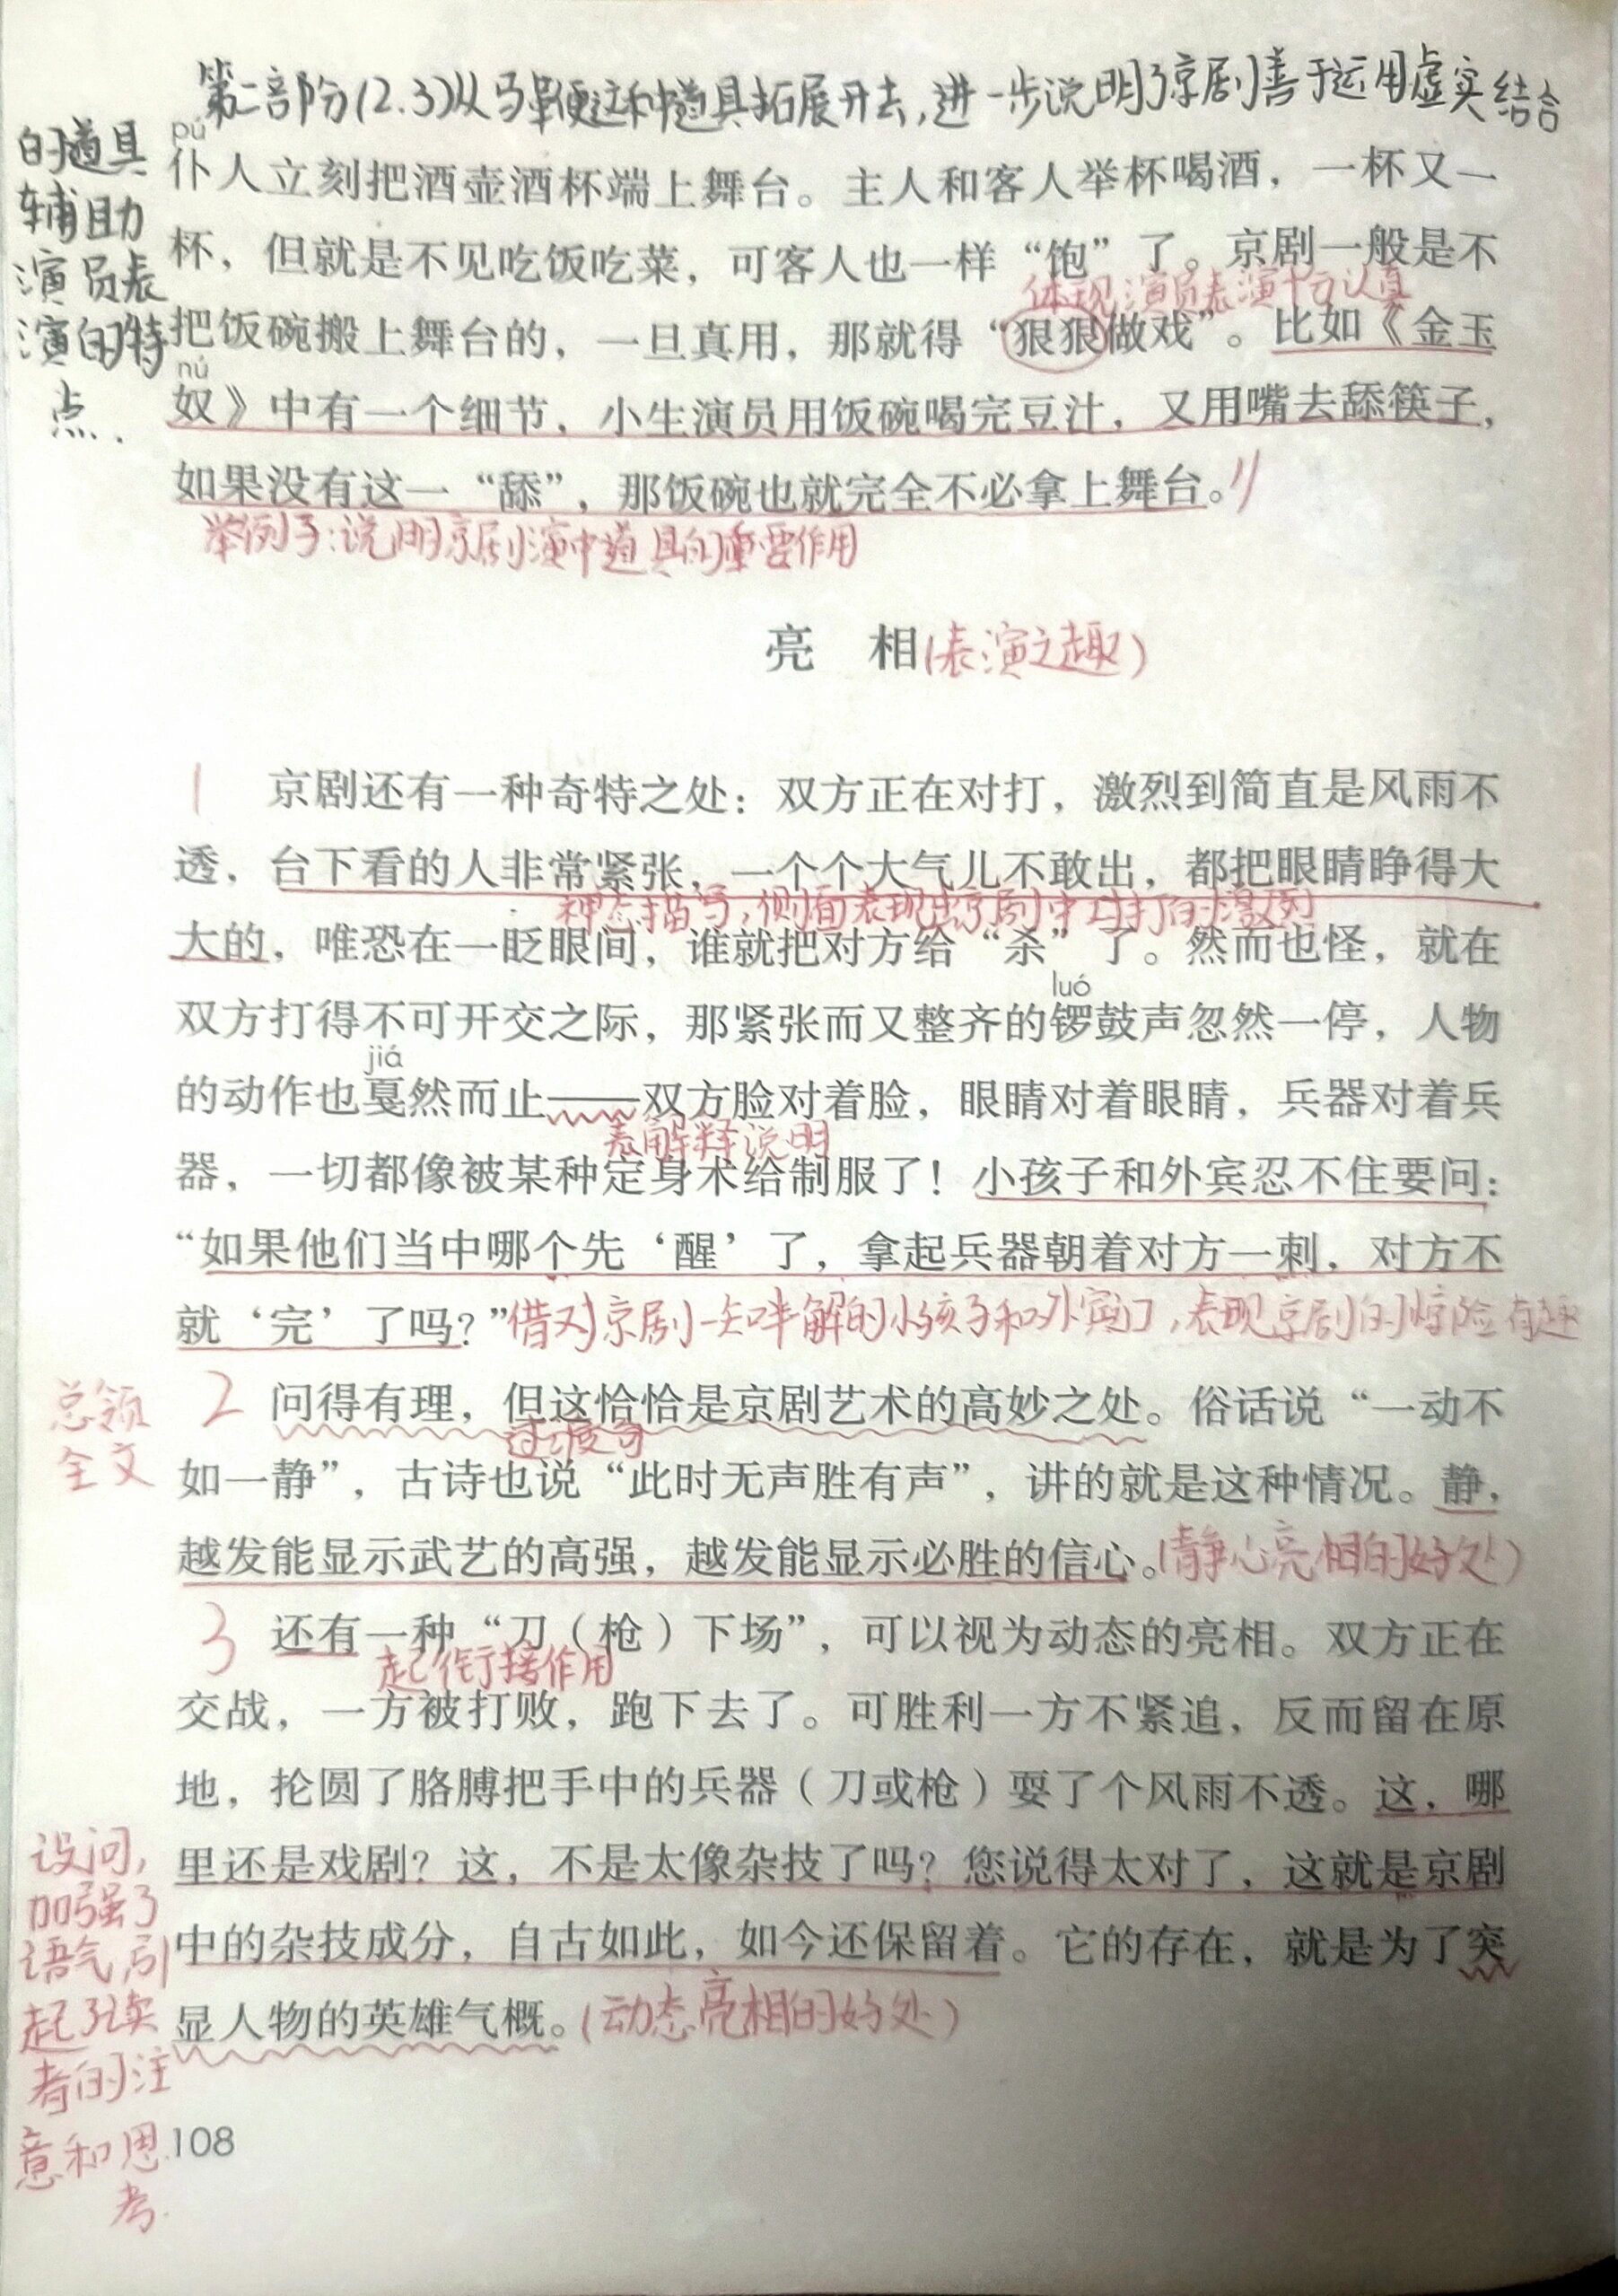 第二部份(2.3)从马鞭这种道具拓展开去,进一步说明了京剧善于运用虚实结合
的道具
辅助
演员表
演的特
点.
pú
仆人立刻把酒壶酒杯端上舞台。主人和客人举杯喝酒，一杯又一
杯，但就是不见吃饭吃菜，可客人也一样“饱”了。京剧一般是不
体现演员表演十分认真
把饭碗搬上舞台的，一旦真用，那就得“狠狠做戏”。比如《金玉
nú
奴》中有一个细节，小生演员用饭碗喝完豆汁，又用嘴去舔筷子，
如果没有这一“舔”，那饭碗也就完全不必拿上舞台。
举例子:说明京剧演中道具的重要作用
亮 相(表演之趣)
1 京剧还有一种奇特之处：双方正在对打，激烈到简直是风雨不
透，台下看的人非常紧张，一个个大气儿不敢出，都把眼睛睁得大
神态描写,侧面表现出京剧中对打的激烈
大的，唯恐在一眨眼间，谁就把对方给“杀”了。然而也怪，就在
luó
双方打得不可开交之际，那紧张而又整齐的锣鼓声忽然一停，人物
jiá
的动作也戛然而止——双方脸对着脸，眼睛对着眼睛，兵器对着兵
表解释说明
器，一切都像被某种定身术给制服了！小孩子和外宾忍不住要问：
“如果他们当中哪个先‘醒’了，拿起兵器朝着对方一刺，对方不
就‘完’了吗？”借对京剧一知半解的小孩子和外宾们,表现京剧的惊险有趣
总领
全文
2 问得有理，但这恰恰是京剧艺术的高妙之处。俗话说“一动不
过渡句
如一静”，古诗也说“此时无声胜有声”，讲的就是这种情况。静，
越发能显示武艺的高强，越发能显示必胜的信心。(静心亮相的好处)
3 还有一种“刀（枪）下场”，可以视为动态的亮相。双方正在
起衔接作用
交战，一方被打败，跑下去了。可胜利一方不紧追，反而留在原
地，抡圆了胳膊把手中的兵器（刀或枪）耍了个风雨不透。这，哪
里还是戏剧？这，不是太像杂技了吗？您说得太对了，这就是京剧
中的杂技成分，自古如此，如今还保留着。它的存在，就是为了突
显人物的英雄气概。(动态亮相的好处)
设问,
加强了
语气,引
起了读
者的注
意和思
考.
108